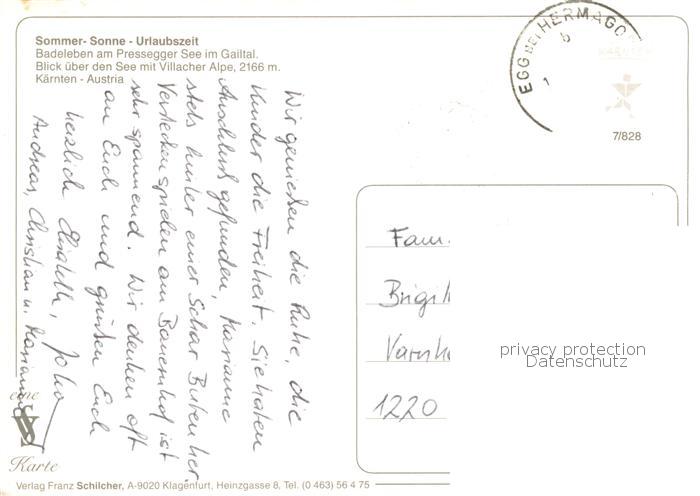 Sommer- Sonne - Urlaubszeit
Badeleben am Pressegger See im Gailtal.
Blick über den See mit Villacher Alpe, 2166 m.
Kärnten - Austria
EGG BEI HERMAGO
b
1
KÄRNTEN
7/828
Wir genießen die Ruhe, die
Kinder die Freiheit. Sie haben
Anschluß gefunden, Marianne
stets hinter einer Schar Buben her.
Verstecken spielen am Bauernhof ist
sehr spannend. Wir denken oft
an Euch und grüßen Euch
herzlich Elisabeth,
Andreas, Christian u. Marianne
Fam.
Brigi
Varnh
1220
privacy protection
Datenschutz
eine
Karte
Verlag Franz Schilcher, A-9020 Klagenfurt, Heinzgasse 8, Tel. (0 463) 56 4 75